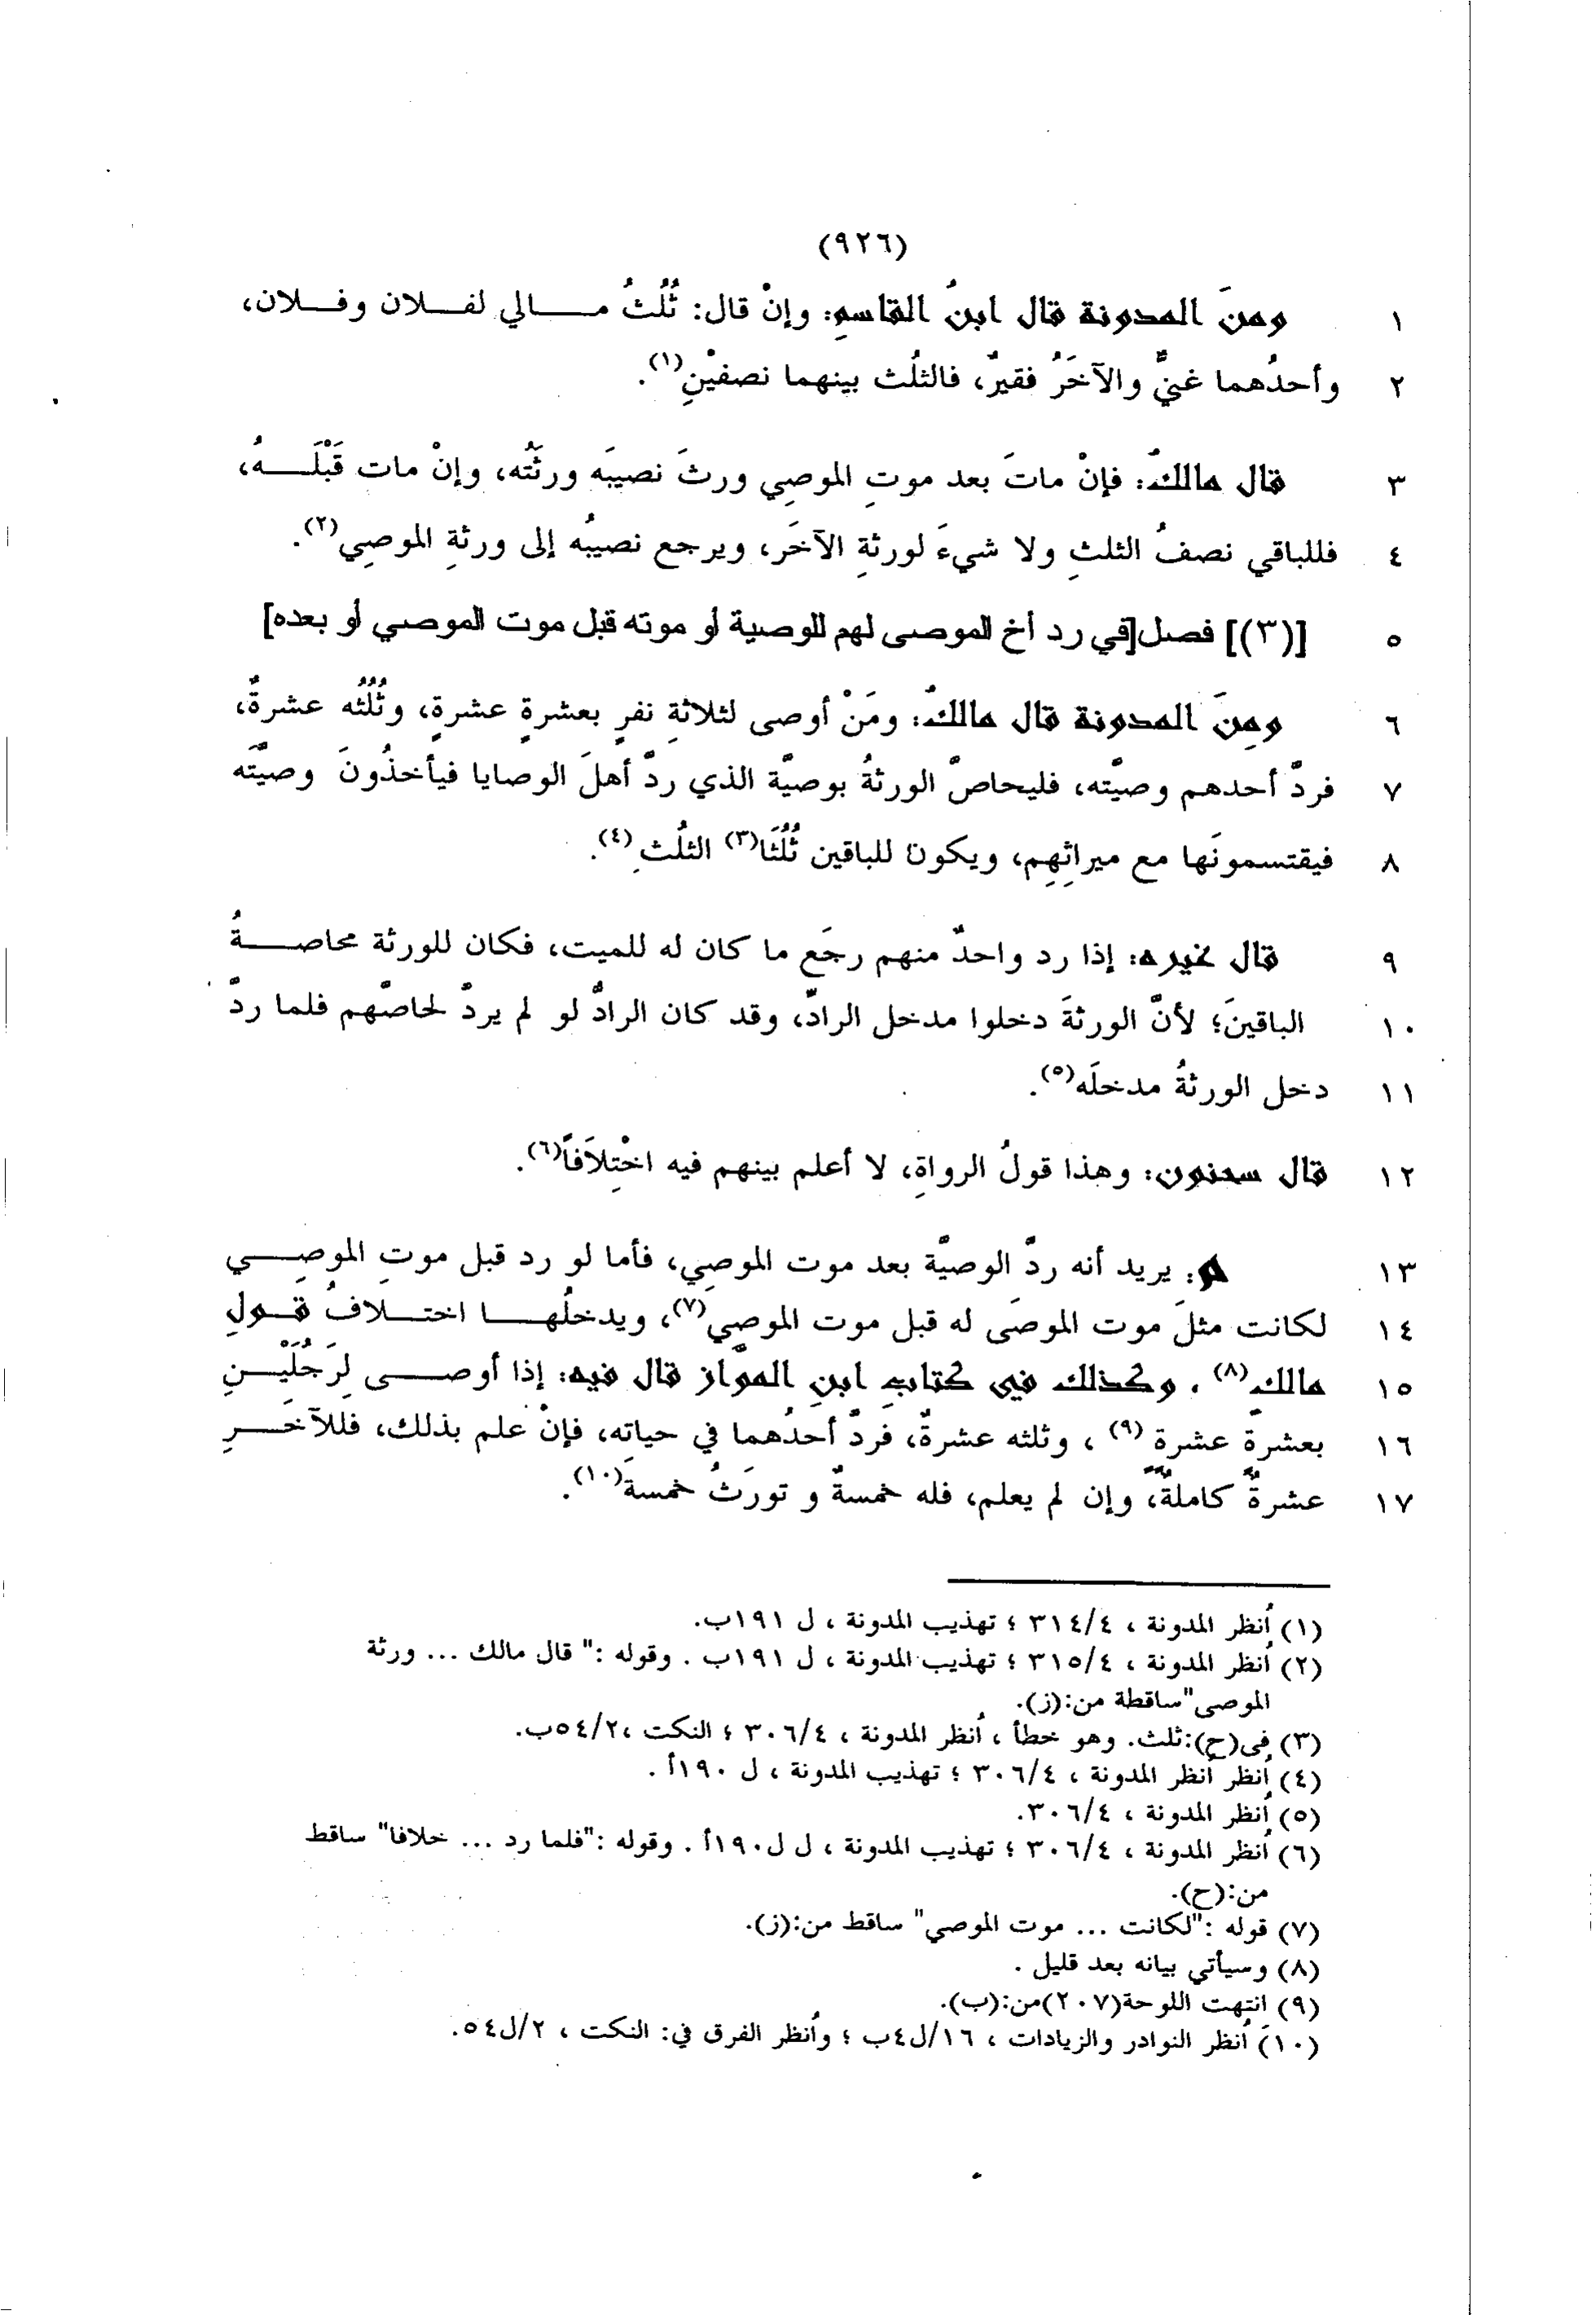 (٩٢٦)
١ ومنَ المدونة قال ابنُ القاسمِ: وإنْ قال: ثُلُثُ مـــالي لفــلان وفــلان،
٢ وأحدُهما غنيٌّ والآخَرُ فقيرٌ، فالثلُث بينهما نصفيْنِ(١).
٣ قال مالكٌ: فإنْ ماتَ بعد موتِ الموصِي ورثَ نصيبَه ورثَتُه، وإنْ مات قَبْلَـــهُ،
٤ فللباقي نصفُ الثلثِ ولا شيءَ لورثةِ الآخَر، ويرجع نصيبُه إلى ورثةِ الموصِي(٢).
٥ [(٣)] فصل[في رد أخ الموصى لهم للوصية أو موته قبل موت الموصي أو بعده]
٦ ومِنَ المدونة قال مالكٌ: ومَنْ أوصى لثلاثةِ نفرٍ بعشرةٍ عشرةٍ، وثُلُثُه عشرةٌ،
٧ فردّ أحدهم وصيّته، فليحاصّ الورثةُ بوصيّة الذي ردّ أهلَ الوصايا فيأخذُونَ وصيّتَه
٨ فيقتسمونَها مع ميراثِهِم، ويكون للباقين ثُلُثَا(٣) الثلُثِ(٤).
٩ قال غيره: إذا رد واحدٌ منهم رجَع ما كان له للميت، فكان للورثة محاصـــةُ
١٠ الباقينَ؛ لأنّ الورثةَ دخلوا مدخل الرادّ، وقد كان الرادُّ لو لم يردّ لحاصّهم فلما ردّ
١١ دخل الورثةُ مدخلَه(٥).
١٢ قال سحنون: وهذا قولُ الرواةِ، لا أعلم بينهم فيه اخْتِلاَفاً(٦).
١٣ م: يريد أنه ردّ الوصيّة بعد موت الموصِي، فأما لو رد قبل موتِ الموصِـــي
١٤ لكانت مثلَ موت الموصَى له قبل موت الموصِي(٧)، ويدخلُهـــا اختــلافُ قــولِ
١٥ مالكٍ(٨)، وكذلك في كتابِ ابنِ الموّاز قال فيه: إذا أوصـــى لِرَجُلَيْـــنِ
١٦ بعشرةٍ عشرة(٩) ، وثلثه عشرةٌ، فردّ أحدُهما في حياته، فإنْ علم بذلك، فللآخَـــرِ
١٧ عشرةٌ كاملةٌ، وإن لم يعلم، فله خمسةٌ و تورَثُ خمسةَ(١٠).
(١) أنظر المدونة ، ٣١٤/٤ ؛ تهذيب المدونة ، ل ١٩١ب.
(٢) أنظر المدونة ، ٣١٥/٤ ؛ تهذيب المدونة ، ل ١٩١ب . وقوله :" قال مالك ... ورثة
الموصى"ساقطة من:(ز).
(٣) في(ح):ثلث. وهو خطأ ، أنظر المدونة ، ٣٠٦/٤ ؛ النكت ،٥٤/٢ب.
(٤) أنظر أنظر المدونة ، ٣٠٦/٤ ؛ تهذيب المدونة ، ل ١٩٠أ .
(٥) أنظر المدونة ، ٣٠٦/٤.
(٦) أنظر المدونة ، ٣٠٦/٤ ؛ تهذيب المدونة ، ل ل١٩٠أ . وقوله :"فلما رد ... خلافا" ساقط
من:(ح).
(٧) قوله :"لكانت ... موت الموصي" ساقط من:(ز).
(٨) وسيأتي بيانه بعد قليل .
(٩) انتهت اللوحة(٢٠٧)من:(ب).
(١٠) أنظر النوادر والزيادات ، ١٦/ل٤ب ؛ وأنظر الفرق في: النكت ، ٢/ل٥٤.